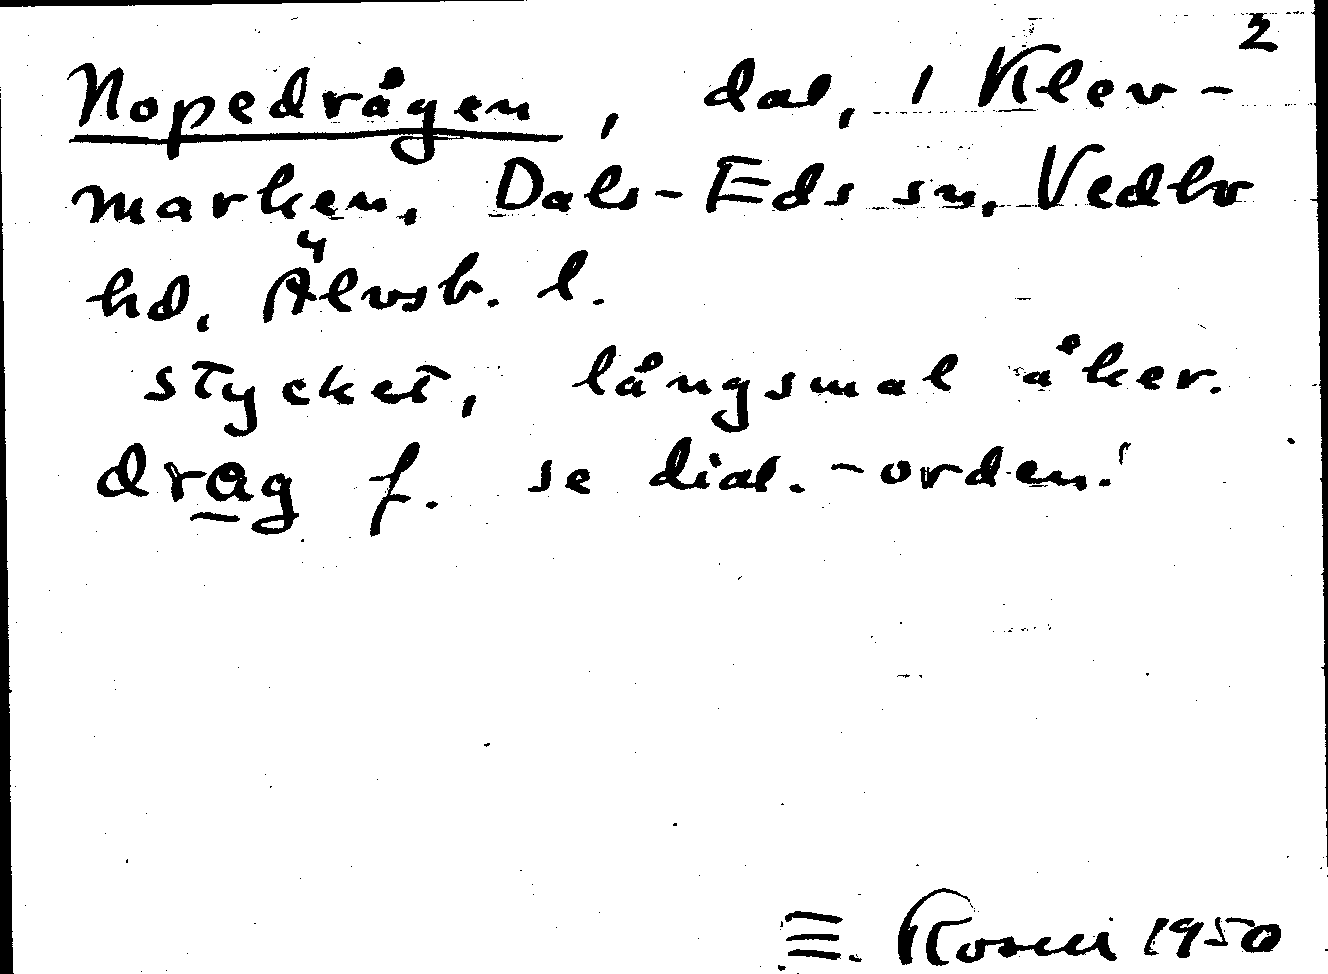 2
Nopedrågen, dal, i Klev-
marken, Dals-Eds sn, Vedbo
hd, Älvsb. l.
stycket, långsmal åker.
drag f. se dial.-orden!
E. Rosell 1950